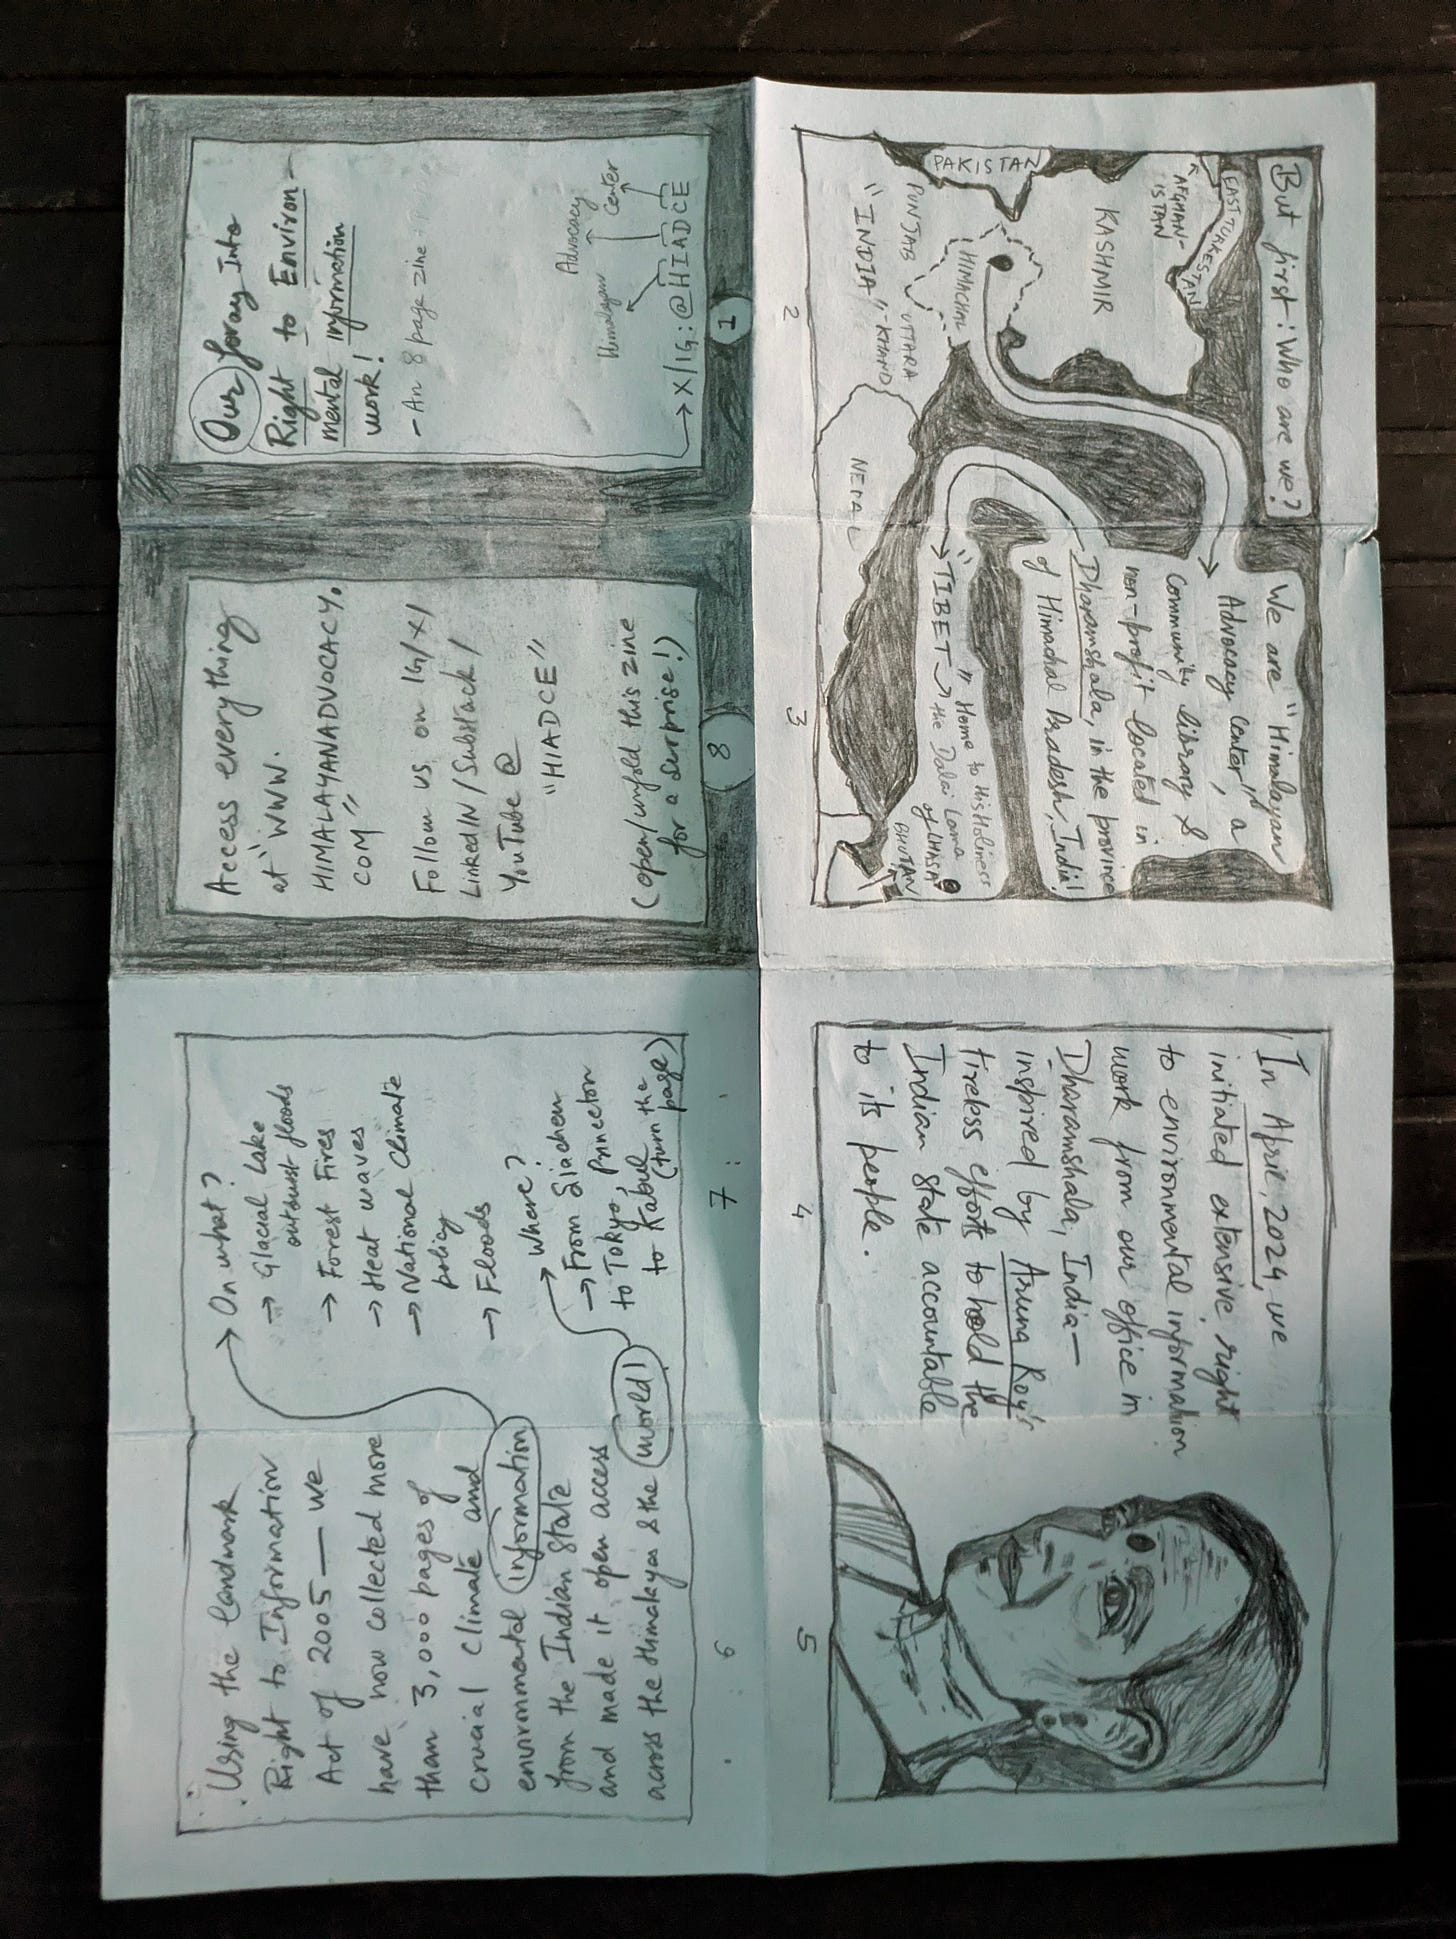 Our foray Into
Right to Environ-
mental information
work!
- An 8 page zine
Himalayan Advocacy Center
→ X/IG: @HIADCE
1
But first: Who are we?
EAST TURKESTAN
AFGHAN-
ISTAN
KASHMIR
PAKISTAN
HIMACHAL
PUNJAB
UTTARA
-KHAND
"INDIA"
NEPAL
2
We are "Himalayan
Advocacy Center", a
Community library &
non-profit located in
Dharamshala, in the province
of Himachal Pradesh, India!
"TIBET" → Home to His Holiness
the Dalai Lama
of LHASA
BHUTAN
3
In April, 2024, we
initiated extensive right
to environmental information
work from our office in
Dharamshala, India—
inspired by Aruna Roy's
tireless efforts to hold the
Indian State accountable
to its people.
4
5
Using the landmark
Right to Information
Act of 2005 — we
have now collected more
than 3,000 pages of
crucial climate and
environmental information
from the Indian State
and made it open access
across the Himalayas & the world!
6
On what?
→ Glacial Lake
outburst floods
→ Forest Fires
→ Heat waves
→ National Climate
policy
→ Floods
Where?
→ From Siachen
to Tokyo, Princeton
to Kabul
(turn the
page)
7
Access everything
at "WWW.
HIMALAYANADVOCACY.
COM"
Follow us on IG/X/
LinkedIN/Substack/
YouTube @
"HIADCE"
(open/unfold this zine
for a surprise!)
8